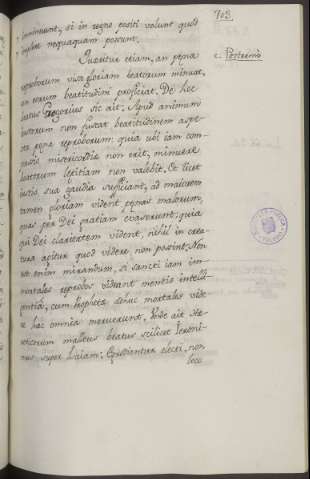 703
contineant, si in regno positi volunt quod
implere nequaquam possunt.
Quæritur etiam, an pena
c. Postremo
reproborum visa gloriam beatorum minuat,
an eorum beatitudini proficiat. De hoc
beatus Gregorius sic ait: Apud animum
justorum non fuscat beatitudinem aspe-
cta pena reproborum: quia ubi iam com-
passio misericordiæ non erit, minuere
beatorum lætitiam non valebit. Et licet
iustis sua gaudia sufficiant, ad maiorem
tamen gloriam vident penas malorum,
quas per Dei gratiam evaserunt: quia
qui Dei claritatem vident, nihil in crea-
tura agitur quod videre non possint. Non
est enim mirandum, si sancti iam im-
mortales reprobos videant mentis intelli-
gentia, cum Prophetæ adhuc mortales vide-
re hæc omnia meruerunt. Unde ait Hæ-
reticorum malleus beatus scilicet Ieroni-
mus super Isaiam: Egredientur electi, non
loco